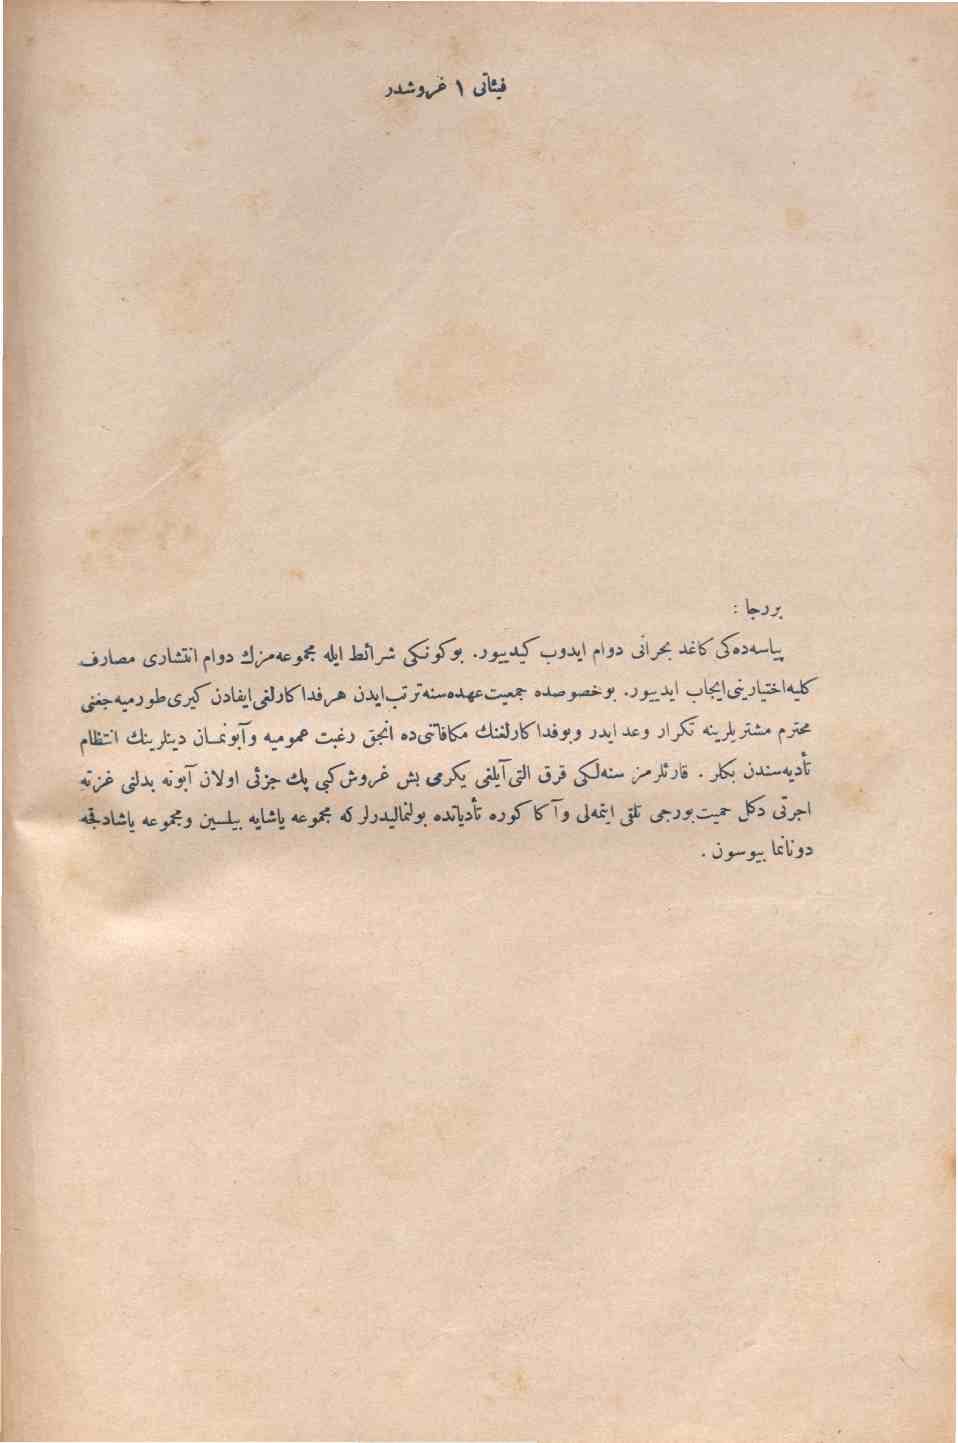 فیئاتی ١ غروشدر
بر رجا :
پیاسه‌ده‌کی کاغد بحرانی دوام ایدوب کیدییور. بوکونکی شرائط ایله مجموعه‌مزك دوام انتشاری مصارف
کلیه اختیارینی ایجاب ایدییور. بو خصوصده جمعیت عهده‌سنه ترتب ایدن هر فداکارلغی ایفادن کیری طورمیه‌جغنی
محترم مشتریلرینه تکرار وعد ایدر و بو فداکارلغنك مکافاتنی‌ده آنجق رغبت عمومیه و آبونمان دینلرینك انتظام
تأدیه‌سندن بکلر . قارئلرمز سنه‌لکی قرق التی آیلغی یکرمی بش غروش کبی پك جزئی اولان آبونه بدلنی غزته
اجرتی دکل حمیت بورجی تلقی ایتمه‌لی و آکا کوره تأدیاتده بولنمالیدرلر که مجموعه یاشایه بیلسین و مجموعه یاشادقجه
دونانما بیوسون .